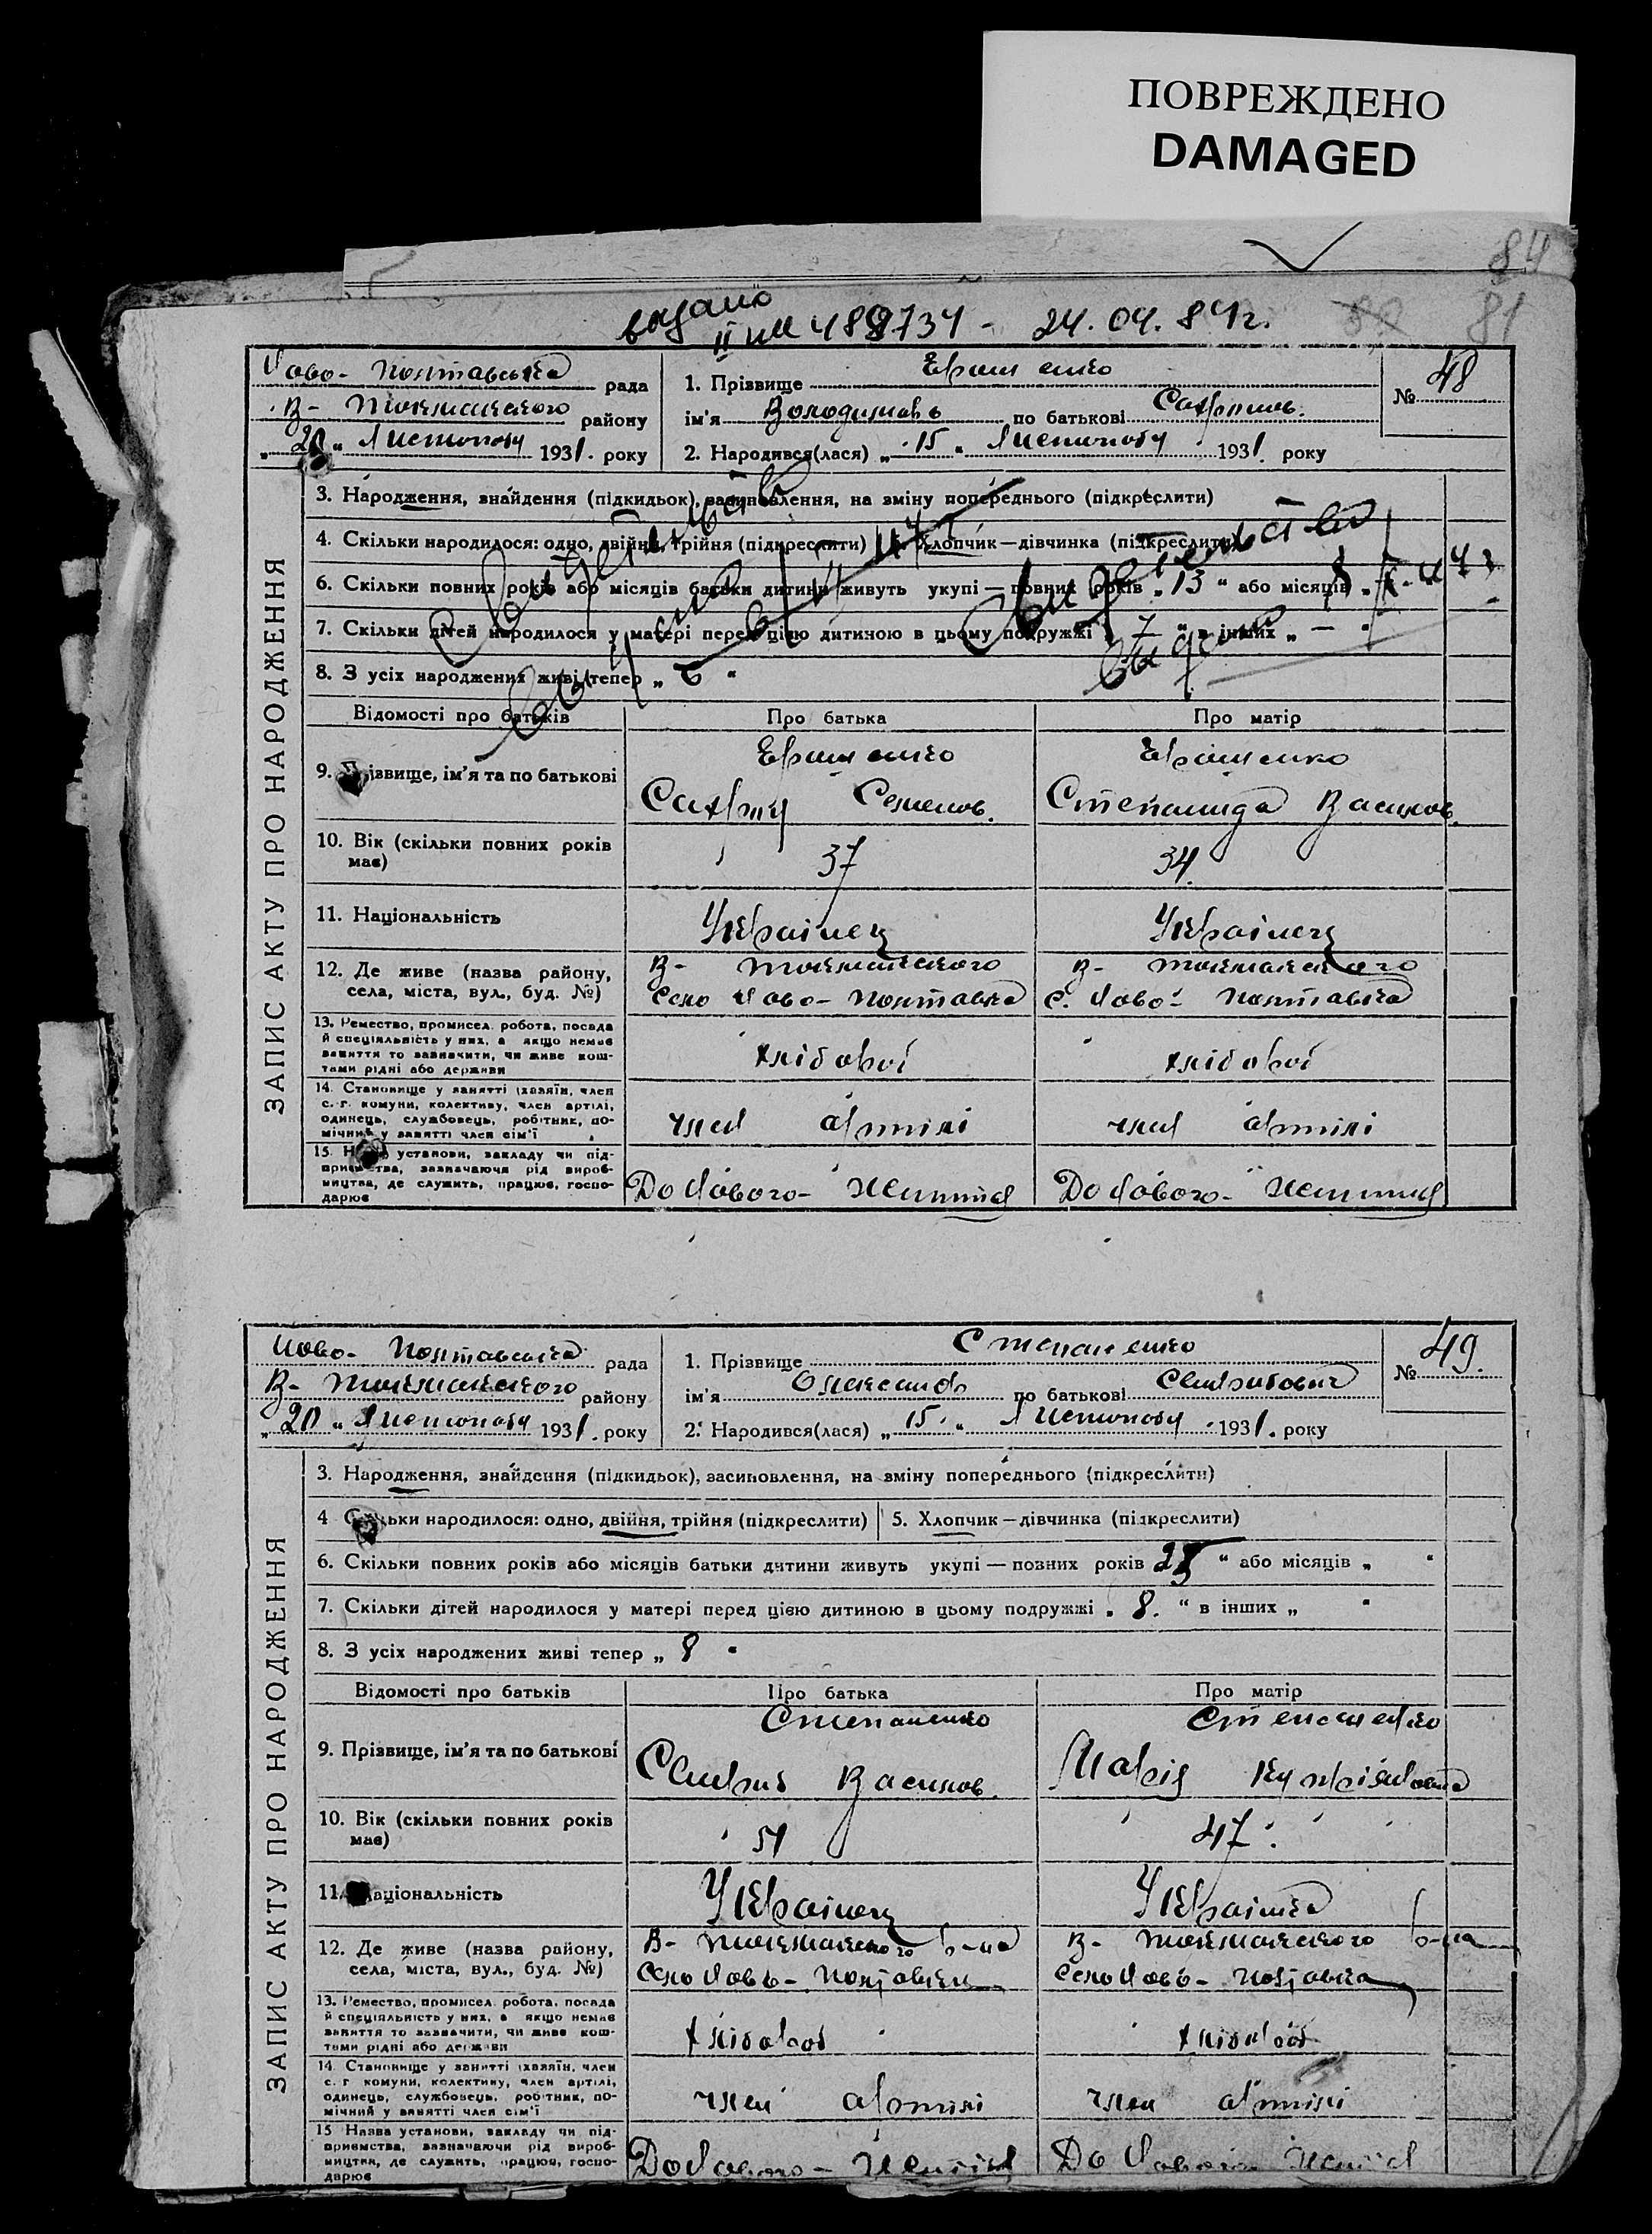 ПОВРЕЖДЕНО
DAMAGED
84
81
видано
II 24.04.84г.
ЗАПИС АКТУ ПРО НАРОДЖЕННЯ
Ново-Полтавська рада
В-Токмакского району
„20“ Листопаду 1931. року
1. Прізвище
ім'я Володимир по батькові
2. Народився(лася) „15“ Листопаду 1931. року
№ 48
3. Народження, знайдення (підкидьок), засиновлення, на зміну попереднього (підкреслити)
4. Скільки народилося: одно, двійня, трійня (підкреслити) Хлопчик—дівчинка (підкреслити)
6. Скільки повних років або місяців батьки дитини живуть укупі — повних років „13“ або місяців „
7. Скільки дітей народилося у матері перед цією дитиною в цьому подружжі „7“ в інших „—“
8. З усіх народжених живі тепер „6“
Відомості про батьків Про батька Про матір
9. Прізвище, ім'я та по батькові
Семенов. Степанида Василов.
10. Вік (скільки повних років має) 37 34.
11. Національність Українец Українец
12. Де живе (назва району, села, міста, вул., буд. №)
В-Токмакского В-Токмакского
Село Ново-Полтавка с. Ново-Полтавка
13. Ремество, промисел, робота, посада й спеціяльність у них, а якщо немає заняття то зазначити, чи живе коштами рідні або держави
хлібороб хлібороб
14. Становище у занятті (хазяїн, член с.-г. комуни, колективу, член артілі, одинець, службовець, робітник, помічний у занятті член сім'ї
член артілі член артілі
15. Назва установи, закладу чи підприємства, зазначаючи рід виробництва, де служить, працює, господарює
До Нового- До Нового-
ЗАПИС АКТУ ПРО НАРОДЖЕННЯ
Ново-Полтавська рада
В-Токмакского району
„20“ Листопаду 1931. року
1. Прізвище Степаненко
ім'я Олександр по батькові
2. Народився(лася) „15“ Листопаду 1931. року
№ 49.
3. Народження, знайдення (підкидьок), засиновлення, на зміну попереднього (підкреслити)
4 Скільки народилося: одно, двійня, трійня (підкреслити) 5. Хлопчик—дівчинка (підкреслити)
6. Скільки повних років або місяців батьки дитини живуть укупі — повних років “ або місяців „ “
7. Скільки дітей народилося у матері перед цією дитиною в цьому подружжі „8.“ в інших „ “
8. З усіх народжених живі тепер „8“
Відомості про батьків Про батька Про матір
Степаненко Степаненко
9. Прізвище, ім'я та по батькові
Василов. Марія
10. Вік (скільки повних років має) 51 47.
11. Національність Українец Українка
12. Де живе (назва району, села, міста, вул., буд. №)
В-Токмакского р-на В-Токмакского р-на
Село Ново-Полтавки Село Ново-Полтавка
13. Ремество, промисел, робота, посада й спеціяльність у них, а якщо немає заняття то зазначити, чи живе коштами рідні або держави
хлібороб хлібороб
14. Становище у занятті (хазяїн, член с.-г. комуни, колективу, член артілі, одинець, службовець, робітник, помічний у занятті член сім'ї
член артілі член артілі
15 Назва установи, закладу чи підприємства, зазначаючи рід виробництва, де служить, працює, господарює
До Нового- До Нового